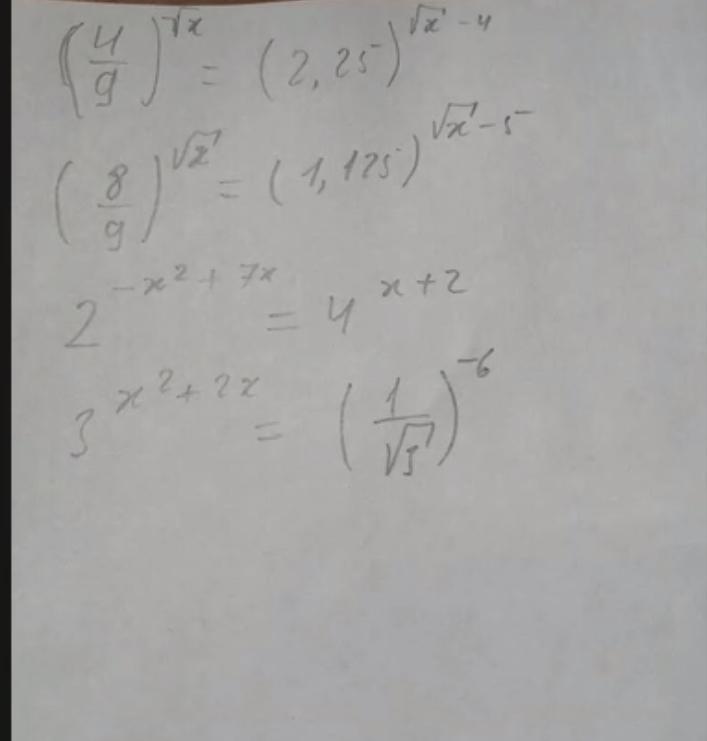 (4/9)^√x = (2,25)^√x - 4
(8/9)^√x = (1,125)^√x - 5
2^-x² + 7x = 4^x + 2
3^x² + 2x = (1/√3)^-6